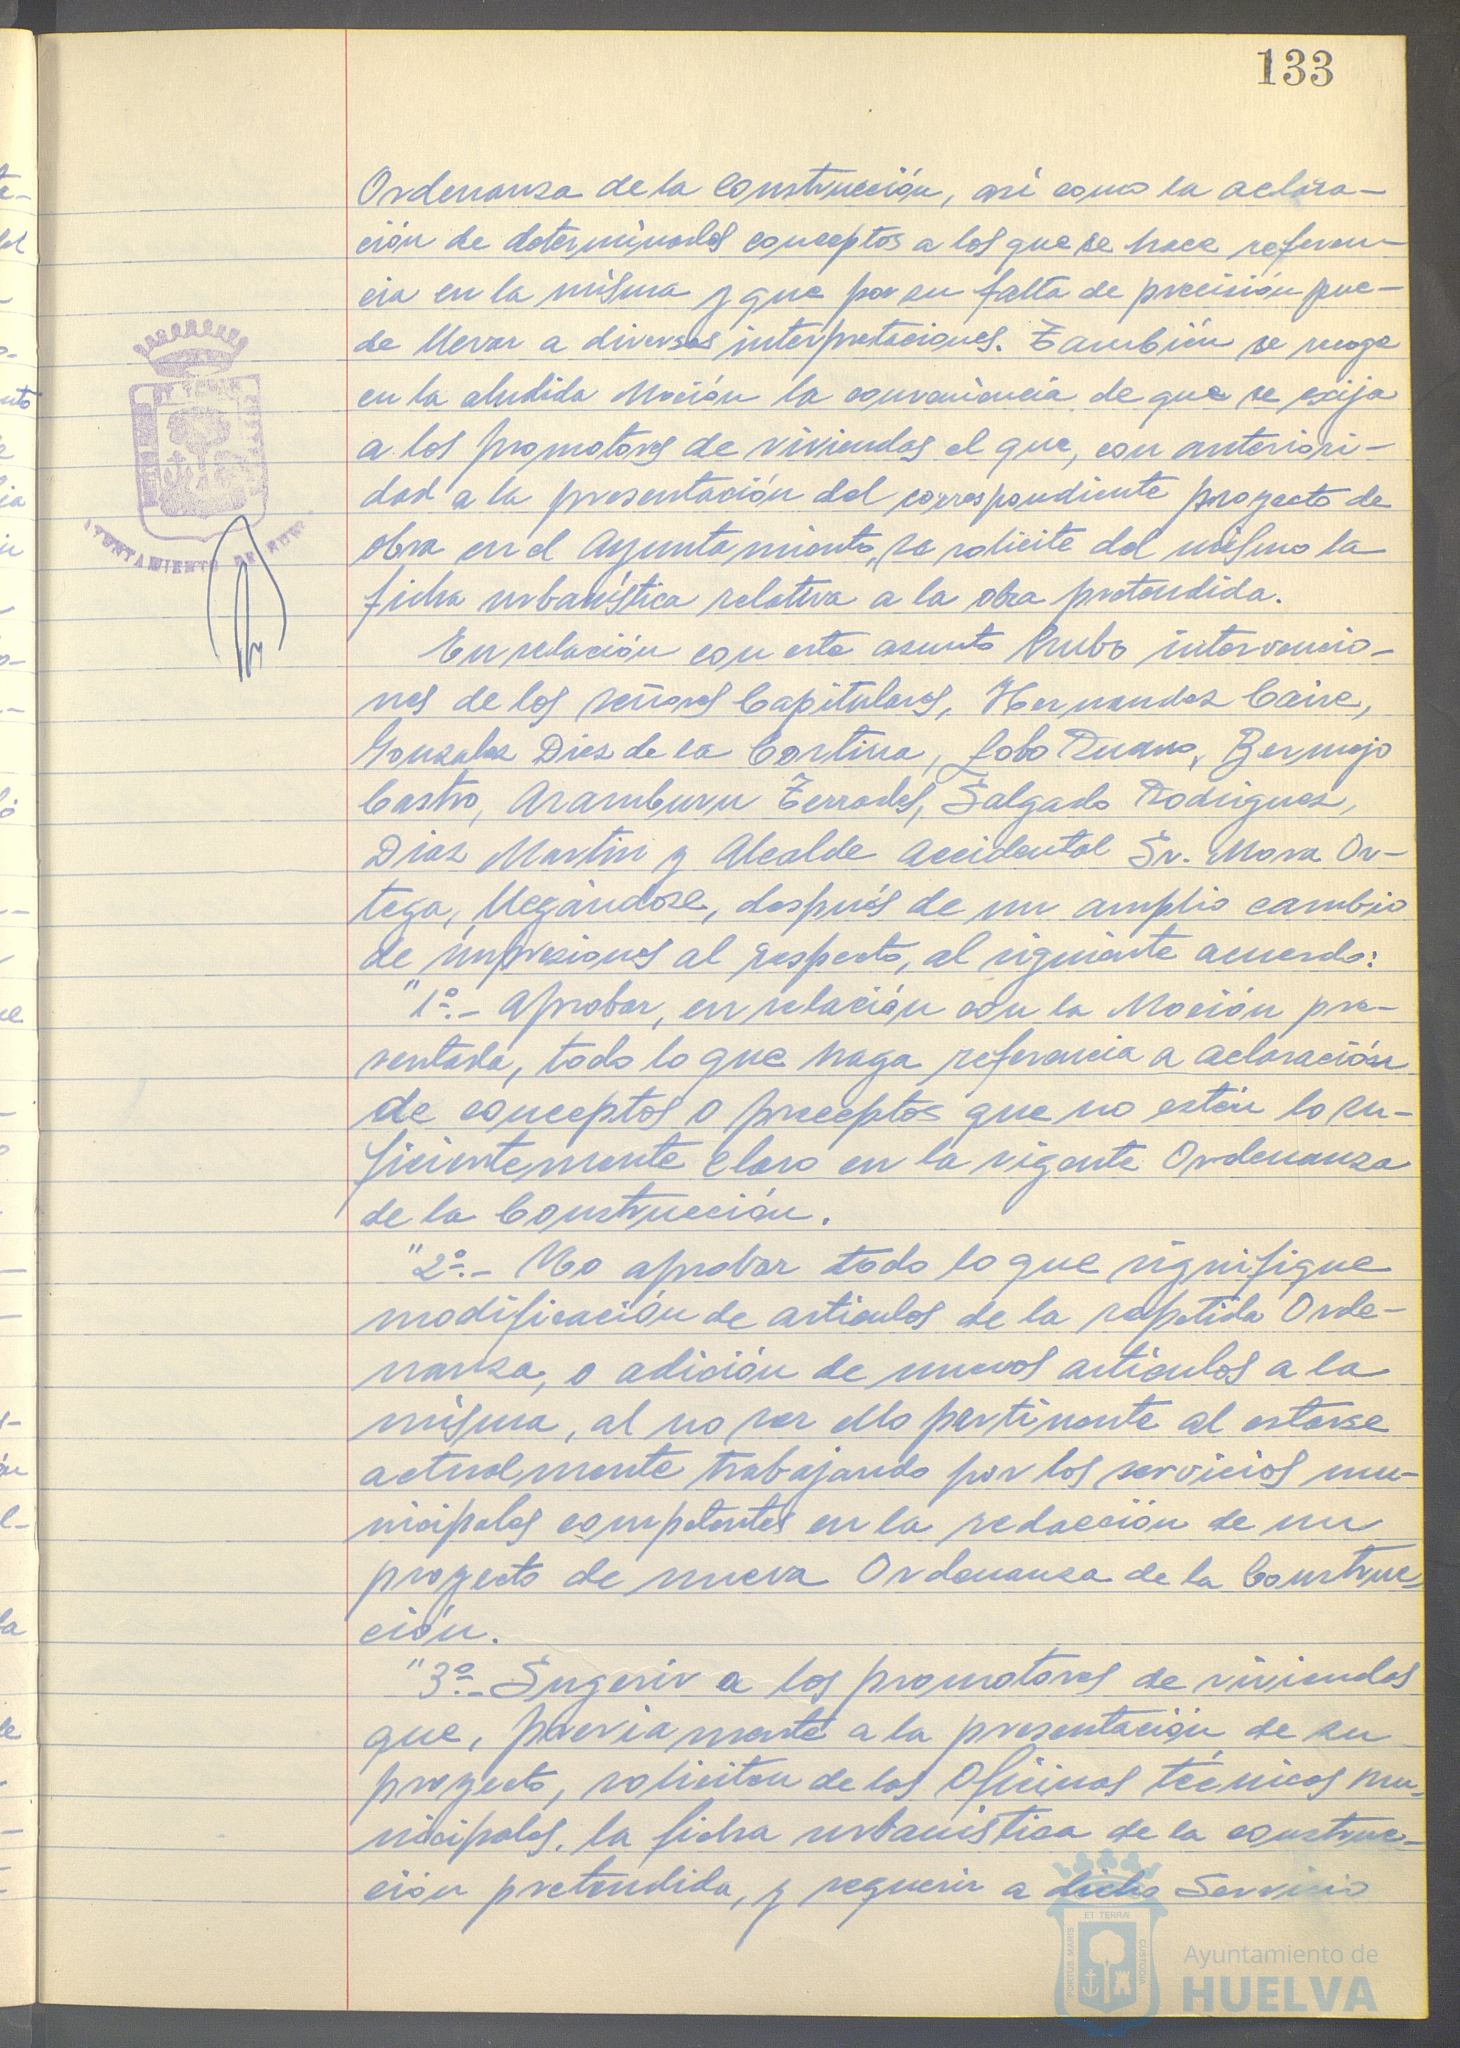 133
Ordenanza de la Construcción, así como la aclara-
ción de determinados conceptos a los que se hace referen-
cia en la misma y que por su falta de precisión pue-
de llevar a diversas interpretaciones. También se recoge
en la aludida Moción la conveniencia de que se exija
a los promotores de viviendas el que, con anteriori-
dad a la presentación del correspondiente proyecto de
obra en el Ayuntamiento, se solicite del mismo la
ficha urbanística relativa a la obra pretendida.
En relación con este asunto hubo intervencio-
nes de los señores Capitulares, Hernandez Caire,
Gonzalez Diez de la Cortina, Lobo Ruano, Bermejo
Castro, Aramburu Terrades, Salgado Rodriguez,
Diaz Martin y Alcalde Accidental Sr. Mora Or-
tega, llegándose, después de un amplio cambio
de impresiones al respecto, al siguiente acuerdo:
"1º.- Aprobar, en relación con la Moción pre-
sentada, todo lo que haga referencia a aclaración
de conceptos o preceptos que no estén lo su-
ficientemente claro en la vigente Ordenanza
de la Construcción.
"2º.- No aprobar todo lo que signifique
modificación de articulos de la repetida Orde-
nanza, o adición de nuevos artículos a la
misma, al no ser ello pertinente al estarse
actualmente trabajando por los servicios mu-
nicipales competentes en la redacción de un
proyecto de nueva Ordenanza de la Construc-
ción.
"3º.- Sugerir a los promotores de viviendas
que, previamente a la presentación de su
proyecto, soliciten de las Oficinas técnicas mu-
nicipales, la ficha urbanística de la construc-
ción pretendida, y requerir a dicho Servicio
AYUNTAMIENTO DE
ET TERRAE
PORTUS MARIS
CUSTODIA
Ayuntamiento de
HUELVA